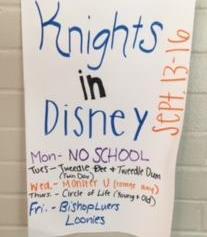 Knights
in
Disney
SEPT. 13-16
Mon- NO SCHOOL
Tues- Tweedle Dee + Tweedle Dum
(Twin Day)
Wed.- Monster U (college day)
Thurs.- Circle of Life (Young + Old)
Fri.- Bishop Luers
Loonies